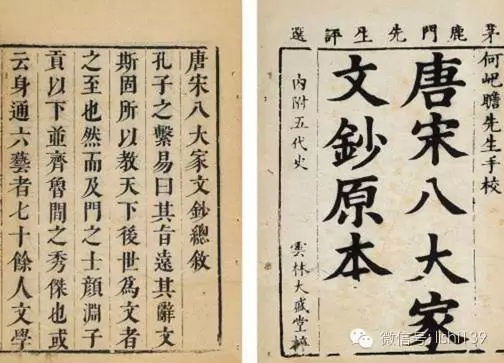 茅鹿門先生評選
何屺瞻先生手校
唐宋八大家
文鈔原本
內附五代史
雲林大盛堂梓
唐宋八大家文鈔總敘
孔子之繫易曰其旨遠其辭文
斯固所以教天下後世為文者
之至也然而及門之士顏淵子
貢以下並齊魯間之秀傑也或
云身通六藝者七十餘人文學
微信号:lishi139